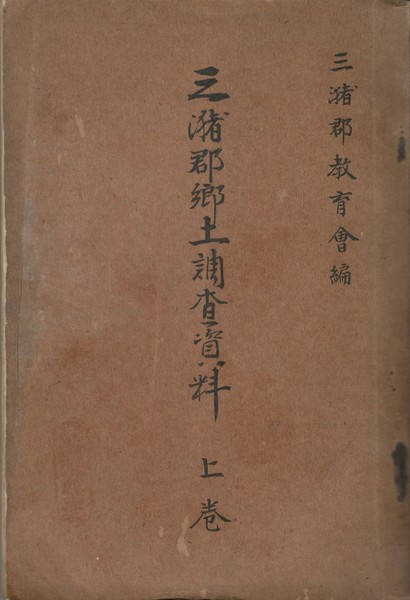 三潴郡教育會編
三潴郡郷土調査資料 上巻